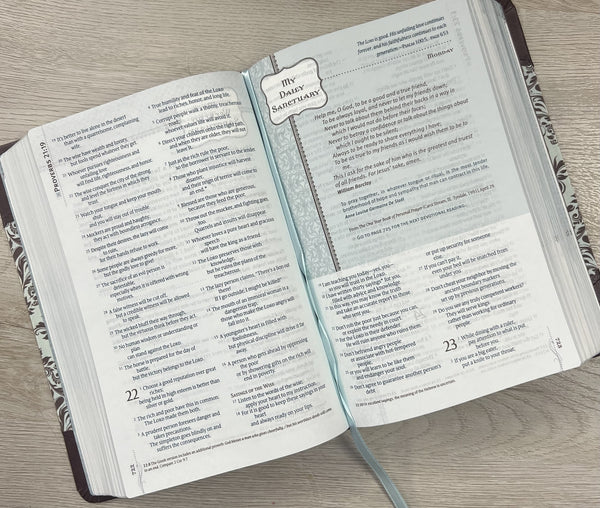 PROVERBS 21:19
19 It's better to live alone in the desert
than with a quarrelsome, complaining
wife.
20 The wise have wealth and luxury,
but fools spend whatever they get.
21 Whoever pursues righteousness and
unfailing love
will find life, righteousness, and honor.
22 The wise conquer the city of the strong
and level the fortress in which they
trust.
23 Watch your tongue and keep your mouth
shut,
and you will stay out of trouble.
24 Mockers are proud and haughty;
they act with boundless arrogance.
25 Despite their desires, the lazy will come
to ruin,
for their hands refuse to work.
26 Some people are always greedy for more,
but the godly love to give!
27 The sacrifice of an evil person is
detestable,
especially when it is offered with wrong
motives.
28 A false witness will be cut off,
but a credible witness will be allowed
to speak.
29 The wicked bluff their way through,
but the virtuous think before they act.
30 No human wisdom or understanding or
plan
can stand against the LORD.
31 The horse is prepared for the day of
battle,
but the victory belongs to the LORD.
22 1 Choose a good reputation over great
riches;
being held in high esteem is better than
silver or gold.
2 The rich and poor have this in common:
The LORD made them both.
3 A prudent person foresees danger and
takes precautions.
The simpleton goes blindly on and
suffers the consequences.
4 True humility and fear of the LORD
lead to riches, honor, and long life.
5 Corrupt people walk a thorny, treacherous
road;
whoever values life will avoid it.
6 Direct your children onto the right path,
and when they are older, they will not
leave it.
7 Just as the rich rule the poor,
so the borrower is servant to the lender.
8 Those who plant injustice will harvest
disaster,
and their reign of terror will come to
an end.
9 Blessed are those who are generous,
because they feed the poor.
10 Throw out the mocker, and fighting goes,
too.
Quarrels and insults will disappear.
11 Whoever loves a pure heart and gracious
speech
will have the king as a friend.
12 The LORD preserves those with
knowledge,
but he ruins the plans of the
treacherous.
13 The lazy person claims, "There's a lion out
there!
If I go outside, I might be killed!"
14 The mouth of an immoral woman is a
dangerous trap;
those who make the LORD angry will
fall into it.
15 A youngster's heart is filled with
foolishness,
but physical discipline will drive it far
away.
16 A person who gets ahead by oppressing
the poor
or by showering gifts on the rich will
end in poverty.
SAYINGS OF THE WISE
17 Listen to the words of the wise;
apply your heart to my instruction.
18 For it is good to keep these sayings in your
heart
and always ready on your lips.
722
The LORD is good. His unfailing love continues
forever, and his faithfulness continues to each
generation. —Psalm 100:5
MONDAY
MY
DAILY
SANCTUARY
Help me, O God, to be a good and a true friend,
To be always loyal, and never to let my friends down;
Never to talk about them behind their backs in a way in
which I would not do before their faces;
Never to betray a confidence or talk about the things about
which I ought to be silent;
Always to be ready to share everything I have;
To be as true to my friends as I would wish them to be to
me.
This I ask for the sake of him who is the greatest and truest
of all friends, for Jesus' sake, amen.
William Barclay
To pray together, in whatever tongue or ritual, is the most tender
brotherhood of hope and sympathy that man can contract in this life.
Anne Louise Germaine De Staël
→ GO TO PAGE 725 FOR THE NEXT DEVOTIONAL READING.
19 I am teaching you today—yes, you—
so you will trust in the LORD.
20 I have written thirty sayings for you,
filled with advice and knowledge.
21 In this way, you may know the truth
and take an accurate report to those
who sent you.
22 Don't rob the poor just because you can,
or exploit the needy in court.
23 For the LORD is their defender.
He will ruin anyone who ruins them.
24 Don't befriend angry people
or associate with hot-tempered
people,
25 or you will learn to be like them
and endanger your soul.
26 Don't agree to guarantee another person's
debt
or put up security for someone
else.
27 If you can't pay it,
even your bed will be snatched from
under you.
28 Don't cheat your neighbor by moving the
ancient boundary markers
set up by previous generations.
29 Do you see any truly competent workers?
They will serve kings
rather than working for ordinary
people.
23 1 While dining with a ruler,
pay attention to what is put
before you.
2 If you are a big eater,
put a knife to your throat;
723